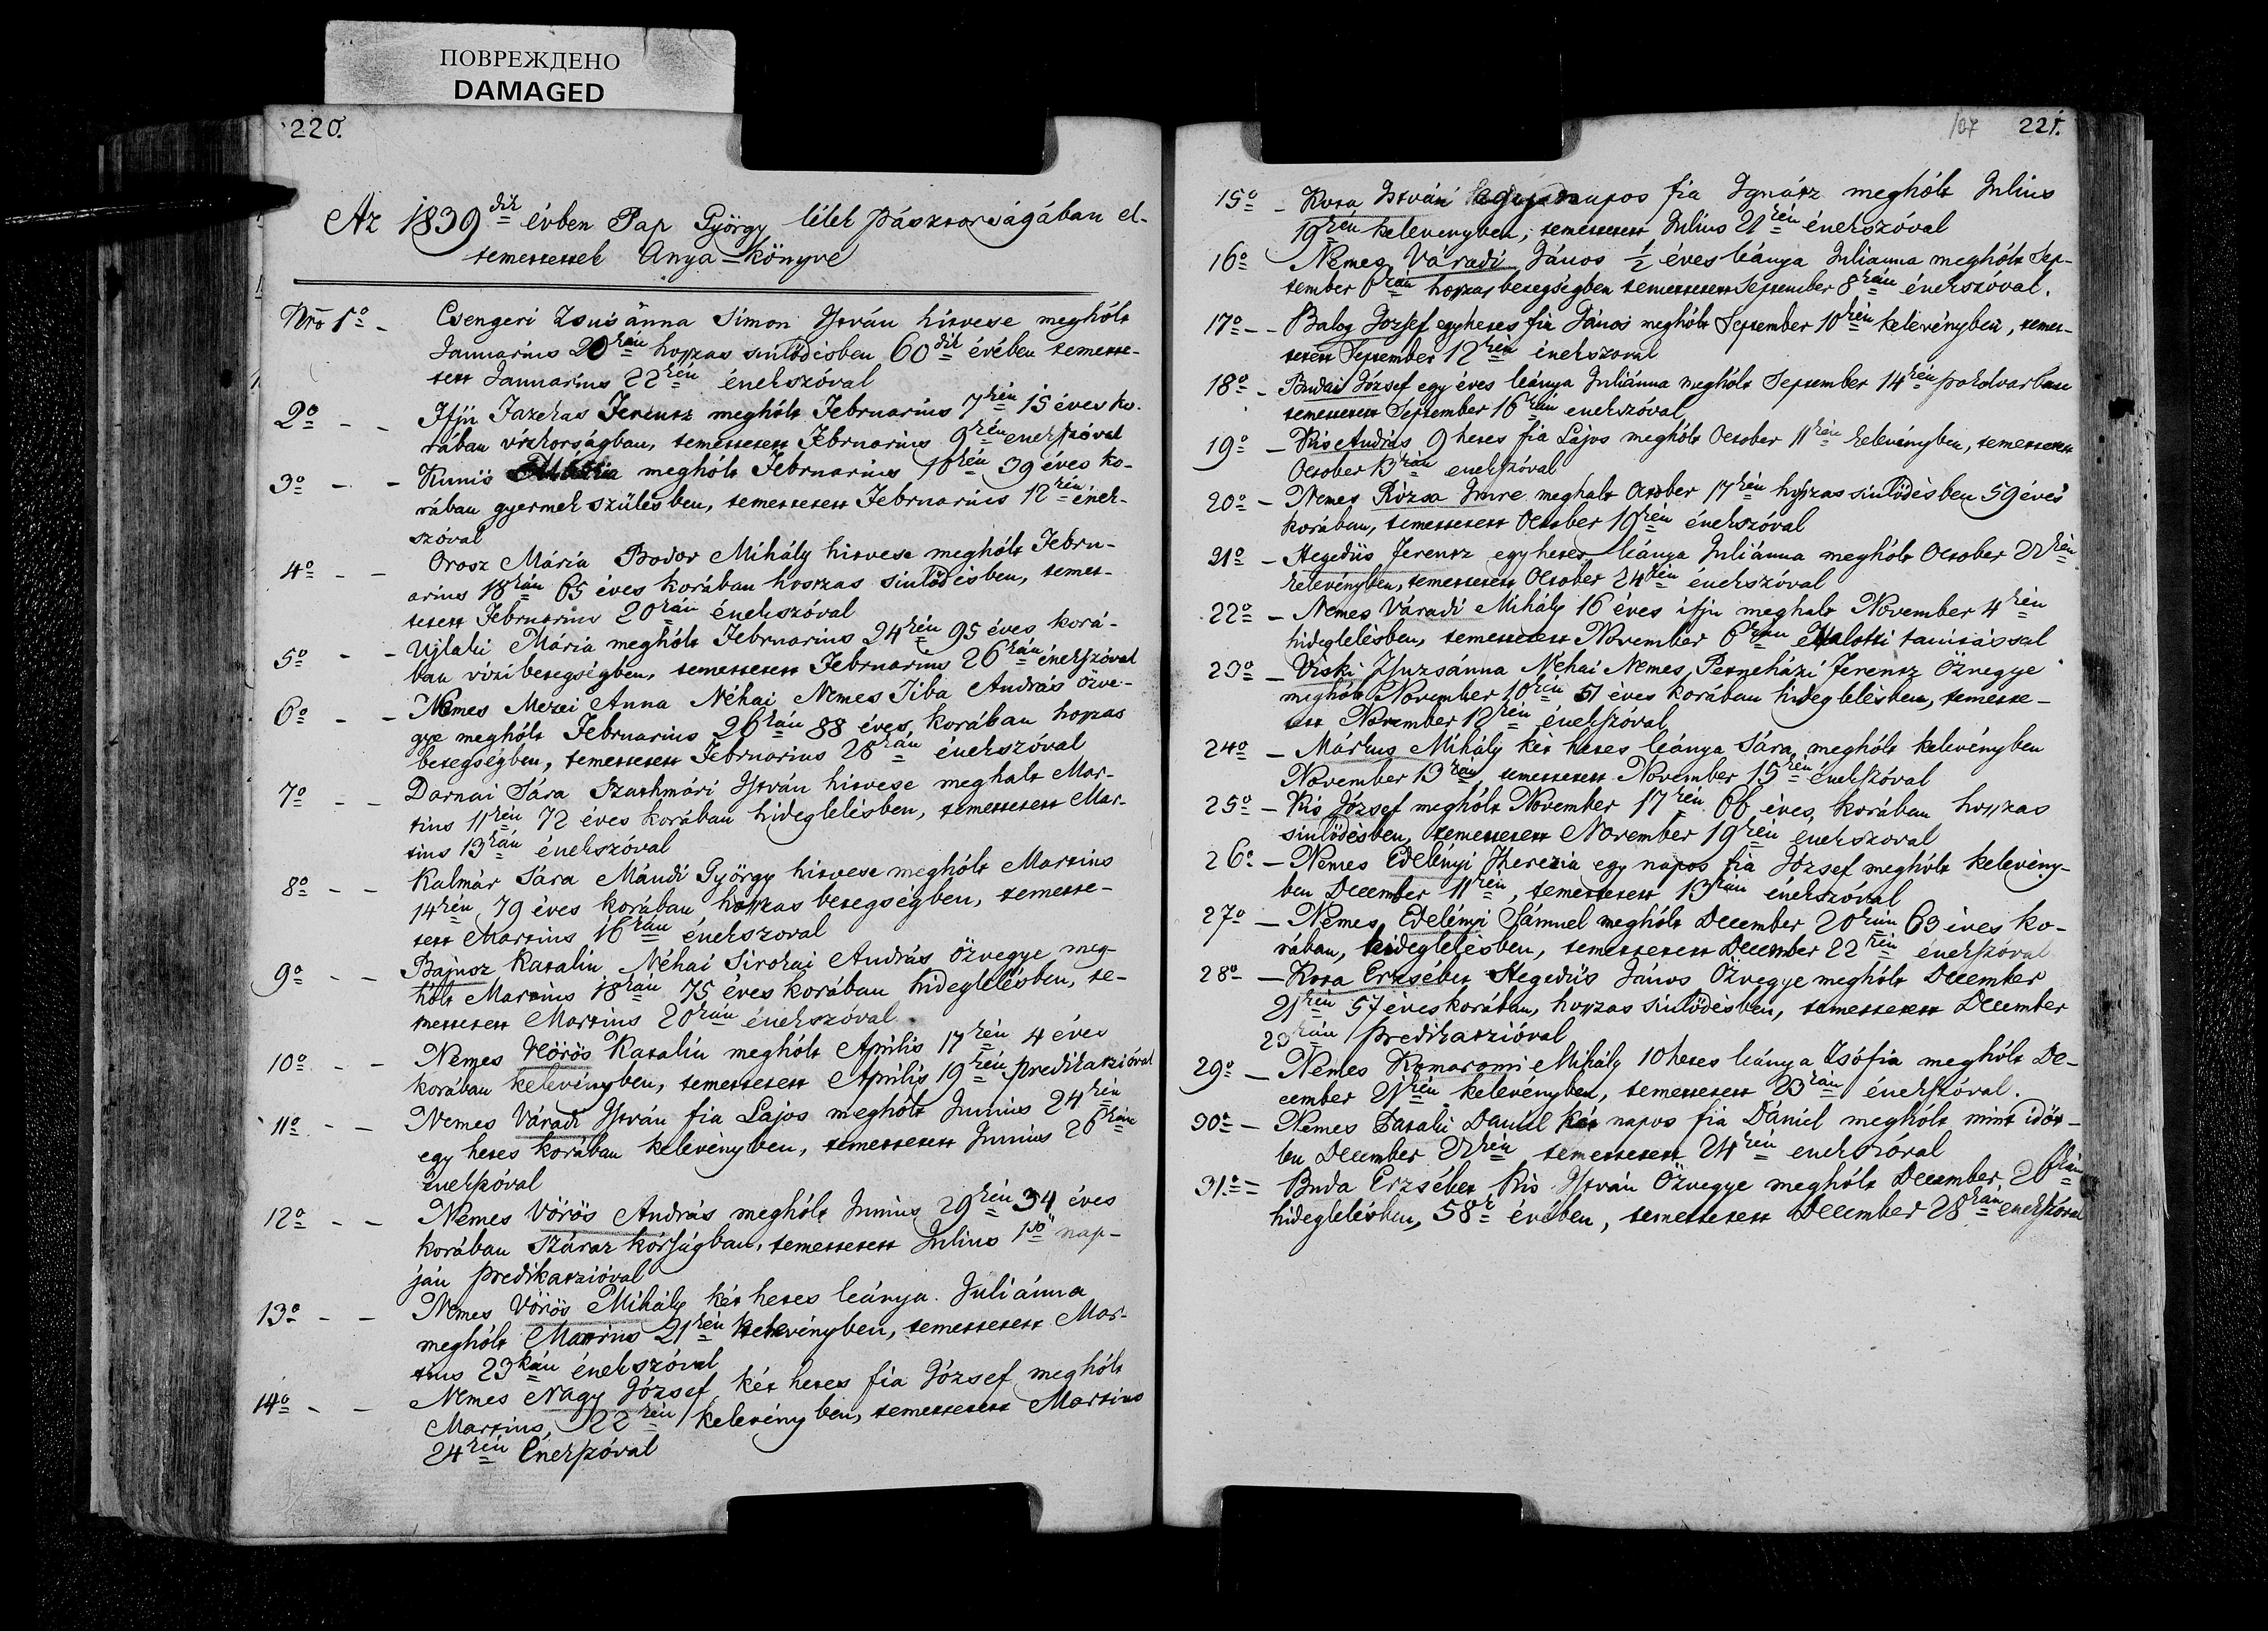 ПОВРЕЖДЕНО
DAMAGED
220.
Az 1839dik évben Pap György lélek pásztorságában el-
temettettek Anya-könyve
Nro 1o Csengeri Zsusánna Simon István hitvese meghólt
Januarius 20kán hosszas sinlődésben 60dik évében temette-
tett Januarius 22kén énekszóval
2o Ifju Fazekas Ferentz meghólt Februarius 7kén 15 éves ko-
rában vízkorságban, temettetett Februarius 9kén énekszóval
3o Kunis Mária meghólt Februarius 10kén 39 éves ko-
rában gyermek szülésben, temettetett Februarius 12kén ének-
szóval
4o Orosz Mária Bodor Mihály hitvese meghólt Febru-
arius 18kán 65 éves korában hosszas sinlődésben, temet-
tetett Februarius 20kán énekszóval
5o Ujlaki Mária meghólt Februarius 24kén 95 éves korá-
ban vízi betegségben, temettetett Februarius 26kán énekszóval
6o Nemes Mezei Anna Néhai Nemes Tiba András özve-
gye meghólt Februarius 26kán 88 éves korában hosszas
betegségben, temettetett Februarius 28kán énekszóval
7o Darnai Sára Szathmári István hitvese meghalt Mar-
tius 11kén 72 éves korában hideglelésben, temettetett Mar-
tius 13kán énekszóval
8o Kalmár Sára Mándi György hitvese meghólt Martius
14kén 79 éves korában hosszas betegségben, temette-
tett Martius 16kán énekszoval
9o Bajusz Katalin Néhai Sirokai András özvegye meg-
hólt Martius 18kán 75 éves korában hideglelésben, te-
mettetett Martius 20kán énekszóval
10o Nemes Vörös Katalin meghólt Aprilis 17kén 4 éves
korában kelevényben, temettetett Aprilis 19kén predikatzióval
11o Nemes Váradi István fia Lajos meghólt Junius 24kén
egy hetes korában kelevényben, temettetett Junius 26kán
énekszóval
12o Nemes Vörös András meghólt Junius 29kén 34 éves
korában Száraz kórságban, temettetett Julius 1ső nap-
ján predikatzióval
13o Nemes Vörös Mihály két hetes leánya Juliánna
meghólt Martius 21kén kelevényben, temettetett Mar-
tius 23kán énekszóval
14o Nemes Nagy József két hetes fia József meghólt
Martius, 22kén kelevényben, temettetett Martius
24kén Énekszóval
107 221.
15o Kosa István napos fia Ignátz meghólt Julius
19kén kelevényben, temettetett Julius 21kén énekszóval
16o Nemes Váradi János 1/2 éves leánya Julianna meghólt Sep-
tember 6kán hosszas betegségben temettetett September 8kán énekszóval.
17o Balog József egyhetes fia János meghólt September 10kén kelevényben, temet-
tetett September 12kén énekszoval
18o Budai József egy éves leánya Juliánna meghólt September 14kén pokolvarban
temettetett September 16kán énekszóval
19o Kis András 9 hetes fia Lajos meghólt October 11kén kelevényben, temettetett
October 13kán énekszóval
20o Nemes Rózsa Imre meghalt October 17kén hosszas sinlődésben 59 éves
korában, temettetett October 19kén énekszóval
21o Hegedüs Ferentz egyhetes leánya Juliánna meghólt October 22kén
kelevényben, temettetett October 24kén énekszóval
22o Nemes Váradi Mihály 16 éves ifju meghalt November 4kén
hideglelésben, temettetett November 6kán Halotti tanitással
23o Viski Zsuzsánna Néhai Nemes Peteházi Ferentz Özvegye
meghólt November 10kén 51 éves korában hideglelésben, temette-
tett November 12kén énekszóval
24o Márkus Mihály két hetes leánya Sára meghólt kelevényben
November 13kán temettetett November 15kén énekszóval
25o Kis József meghólt November 17kén 66 éves korában hosszas
sinlődésben, temettetett November 19kén énekszoval
26o Nemes Edelényi Therézia egy napos fia József meghólt kelevény-
ben December 11kén, temettetett 13kán énekszóval
27o Nemes Edelényi Sámuel meghólt December 20kán 63 éves ko-
rában, hideglelésben, temettetett December 22kén énekszóval
28o Kosa Erzsébet Hegedüs János Özvegye meghólt December
21kén 57 éves korában, hosszas sinlődésben, temettetett December
23kán predikatzióval
29o Nemes Komaromi Mihály 10 hetes leánya Zsófia meghólt De-
cember 21kén kelevényben, temettetett 23kán énekszóval.
30o Nemes Pataki Daniel két napos fia Dániel meghólt mint idöt-
len December 22kén temettetett 24kén énekszóval
31o Buda Erzsébet Kis István Özvegye meghólt December 26kán
hideglelésben, 58k évében, temettetett December 28kán énekszóval